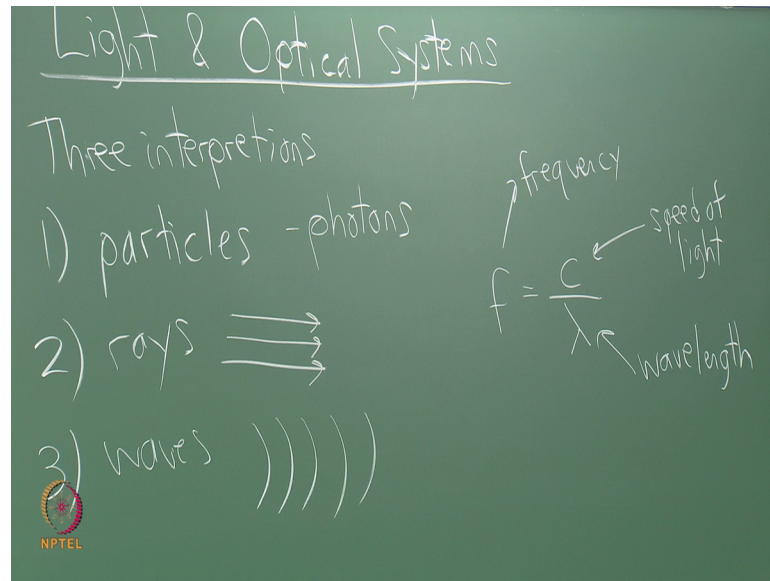 Light & Optical Systems
Three interpretions
1) particles - photons
2) rays
3) waves
frequency
f = c/λ
speed of
light
wavelength
NPTEL